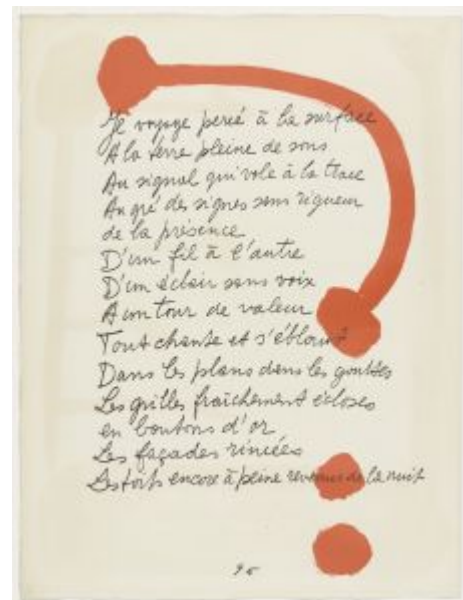 Je voyage percé à la surface
A la terre pleine de sons
Au signal qui vole à la trace
Au gré des signes sans rigueur
de la présence
D'un fil à l'autre
D'un éclair sans voix
A un tour de valeur
Tout chante et s'éblouit
Dans les plans dans les gouttes
Les grilles fraîchement écloses
en boutons d'or
Les façades rincées
Les toits encore à peine revenus de la nuit